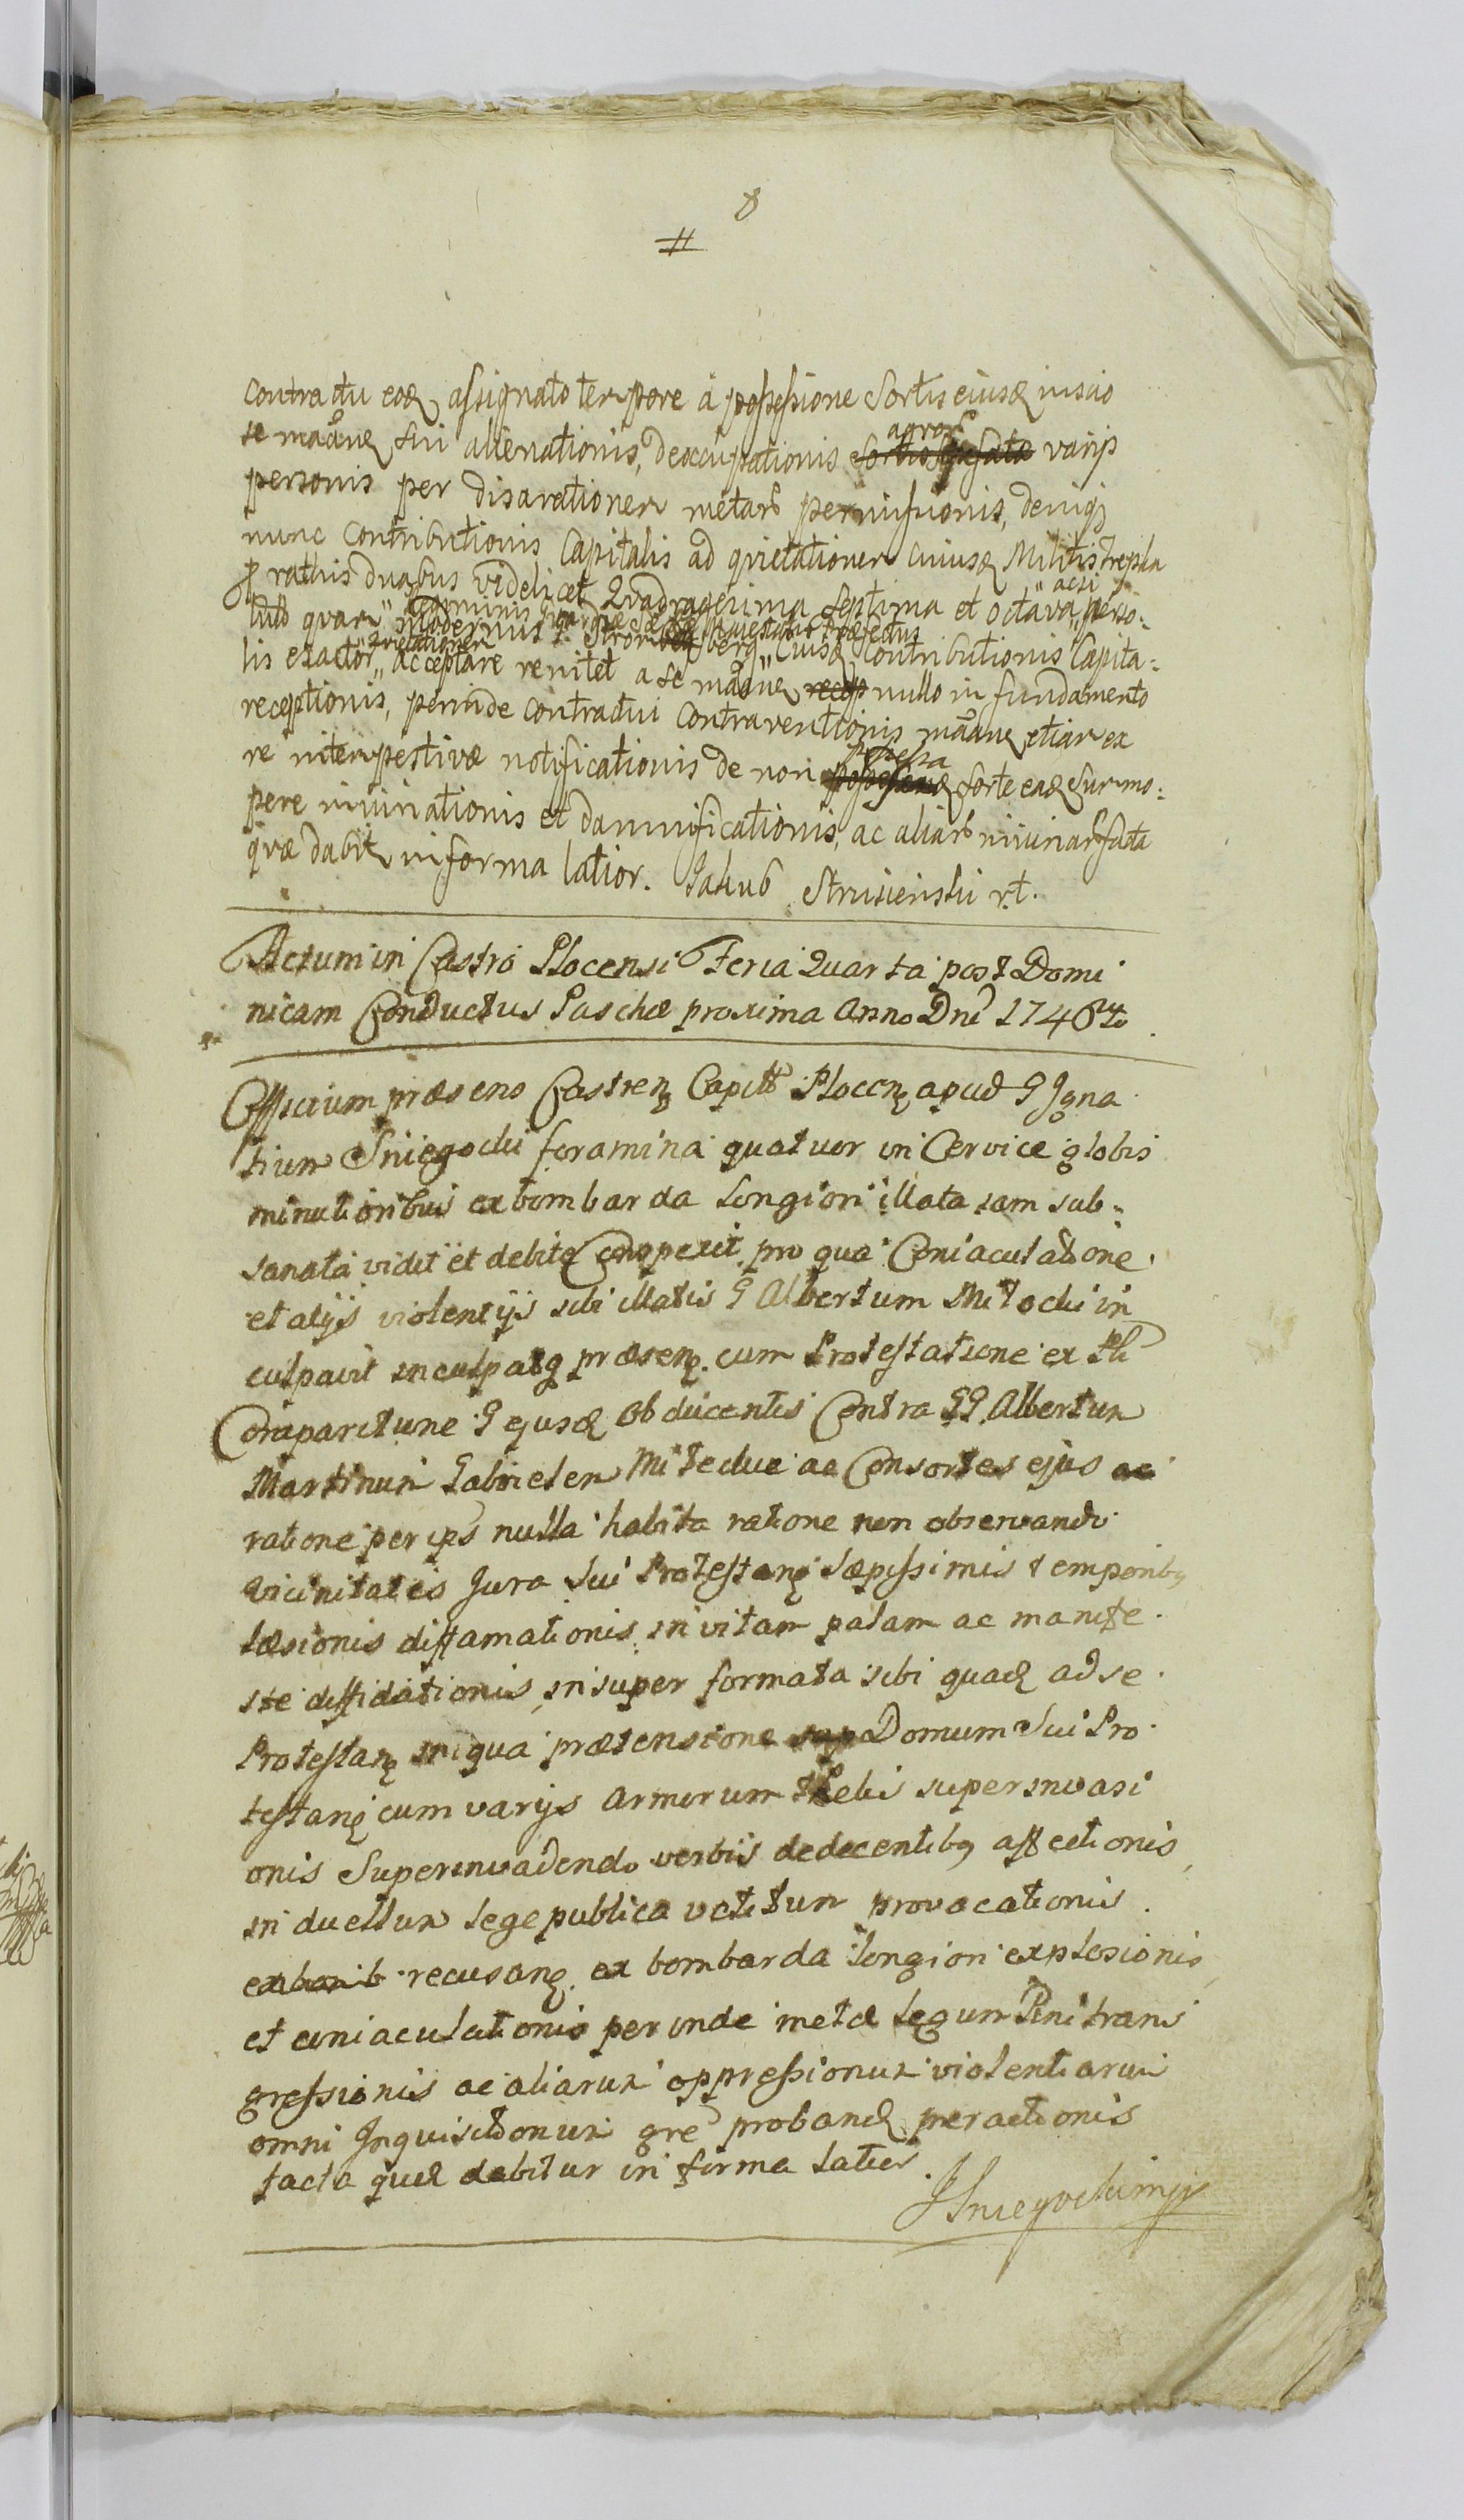 8
contractu eoq assignato tempore à possessione Sortis eiusq inscio
se maōne sui alienationis, deoccupationis agror varijs
personis per disarationem metarb permissionis, deniq
nunc contributionis Capitalis ad quietationem cuiusq Militis
p rathis duabus videlicet Quadragesima septima et octava "acsi perso-
luto quam modernus Stromberg cuiusq contributionis Capita-
lis exactor "quietationem acceptare renitet a se maōne nullo in fundamento
receptionis, perinde contractui contraventionis maōne etiam ex
re intempestivæ notificationis de non possessa sorte eaq summo-
pere iniuriationis et damnificationis, ac aliarb iniuriarb facta
quæ dabit in forma latior. Jakub Strusienski rt.
Actum in Castro Plocensi Feria Quarta post Domi
nicam Conductus Paschæ proxima Anno Dni 1746to
Officium præsens Castren Capitle Plocen apud G Igna
tium Sniegocki foramina quatuor in Cervice globis
minutioribus ex bombarda longiori illata iam sub-
sanata vidit et debite Conspexit pro qua Coniaculatione
et alijs violentijs sibi illatis G Albertum Mitocki in
culpavit inculpatq præsen. cum Protestatione ex
Comparitione G ejusd Obducentis Contra GG Albertum
Martinum Gabrielem ac Consortes ejus
ratione per ips nulla habita ratione non observandi
vicinitatis Jura Sui Protestane sæpissimis temporibq
læsionis diffamationis in vitam palam ac manife
ste diffidationis, insuper formata sibi quad ad se
Protestan iniqua prætensione Domum Sui Pro
testane cum varijs armorum telis superinvasi
onis Superinvadendo verbis dedecentibq affectionis,
in duellum lege publica vetitum provocationis
recusane ex bombarda longiori explosionis
et coniaculationis perinde metæ legum trans
gressionis ac aliarum oppressionum violentiarum
omni Inquisitionum gre proband peractionis
facta queq dabitur in forma latior.
JSniegocki mpp